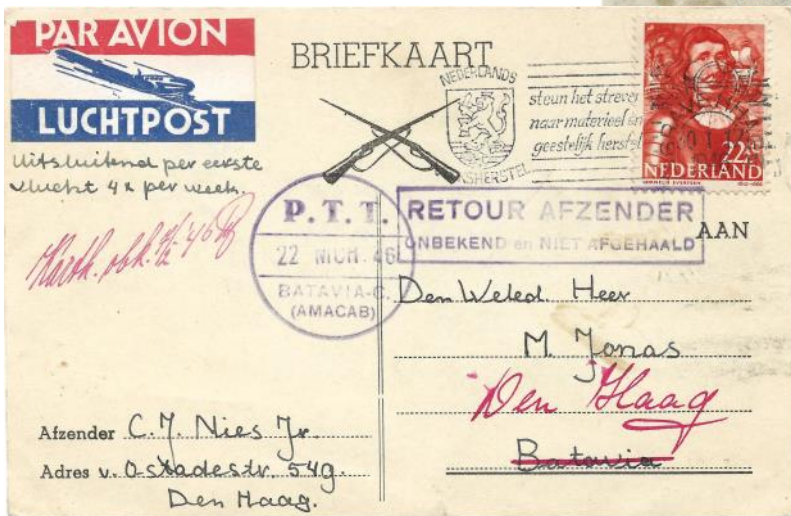 PAR AVION
LUCHTPOST
BRIEFKAART
Uitsluitend per eerste
vlucht 4x per week.
NEDERLANDS
steun het streven
naar materieel en
geestelijk herstel
22½
NEDERLAND
P.T.T.
22 MCH. 46
BATAVIA-C.
(AMACAB)
RETOUR AFZENDER
ONBEKEND en NIET AFGEHAALD
AAN
Den Weled. Heer
M. Jonas
Den Haag
Batavia
Afzender C.J. Nies Jr.
Adres v. Ostadestr. 549.
Den Haag.